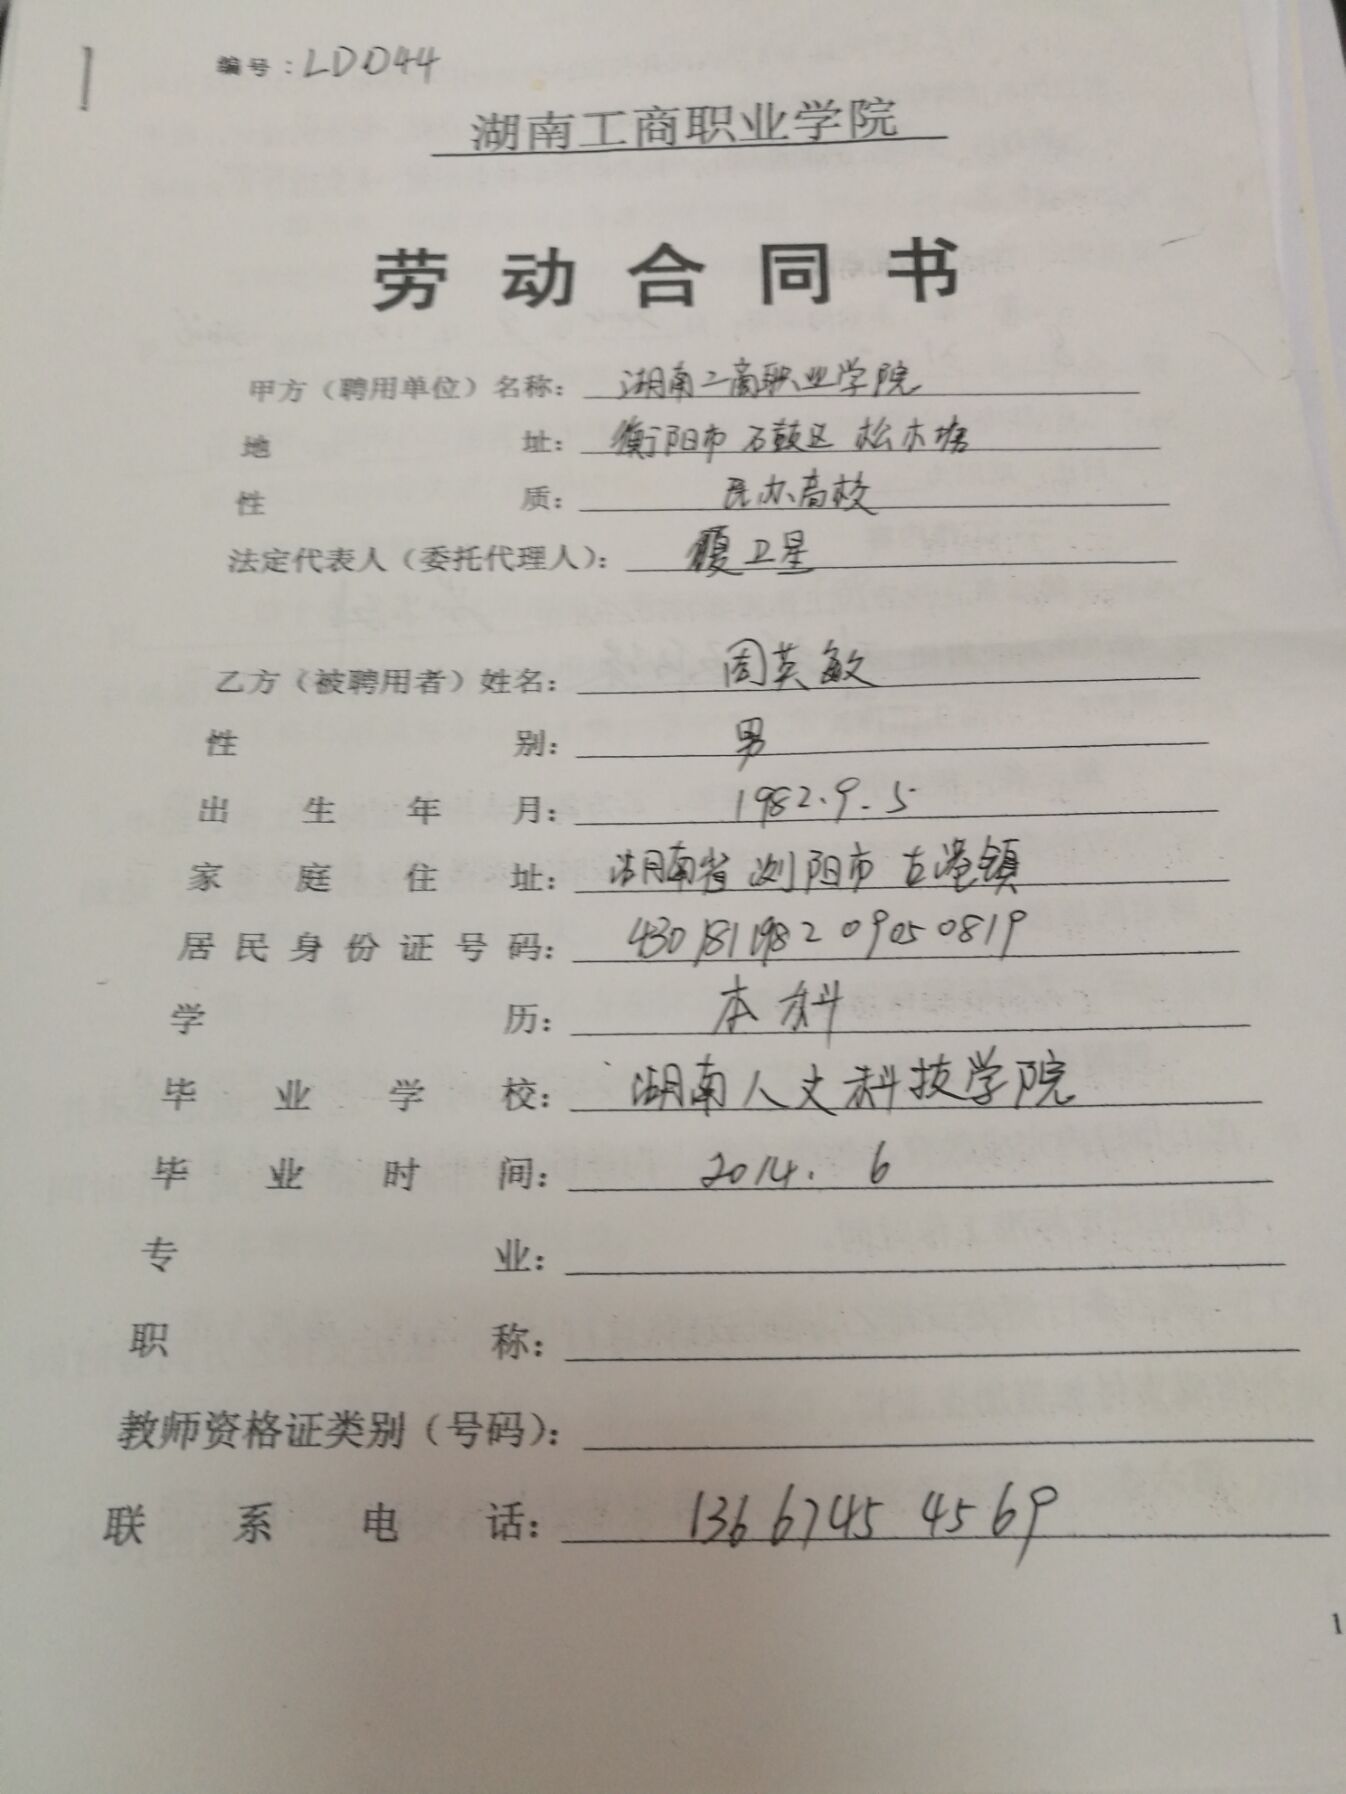 编号：LD044
湖南工商职业学院
劳动合同书
甲方（聘用单位）名称：湖南工商职业学院
地址：衡阳市石鼓区松木塘
性质：民办高校
法定代表人（委托代理人）：卫星
乙方（被聘用者）姓名：周英敏
性别：男
出生年月：1982.9.5
家庭住址：湖南省浏阳市古港镇
居民身份证号码：430181198209050819
学历：本科
毕业学校：湖南人文科技学院
毕业时间：2014.6
专业：
职称：
教师资格证类别（号码）：
联系电话：13667454569
1